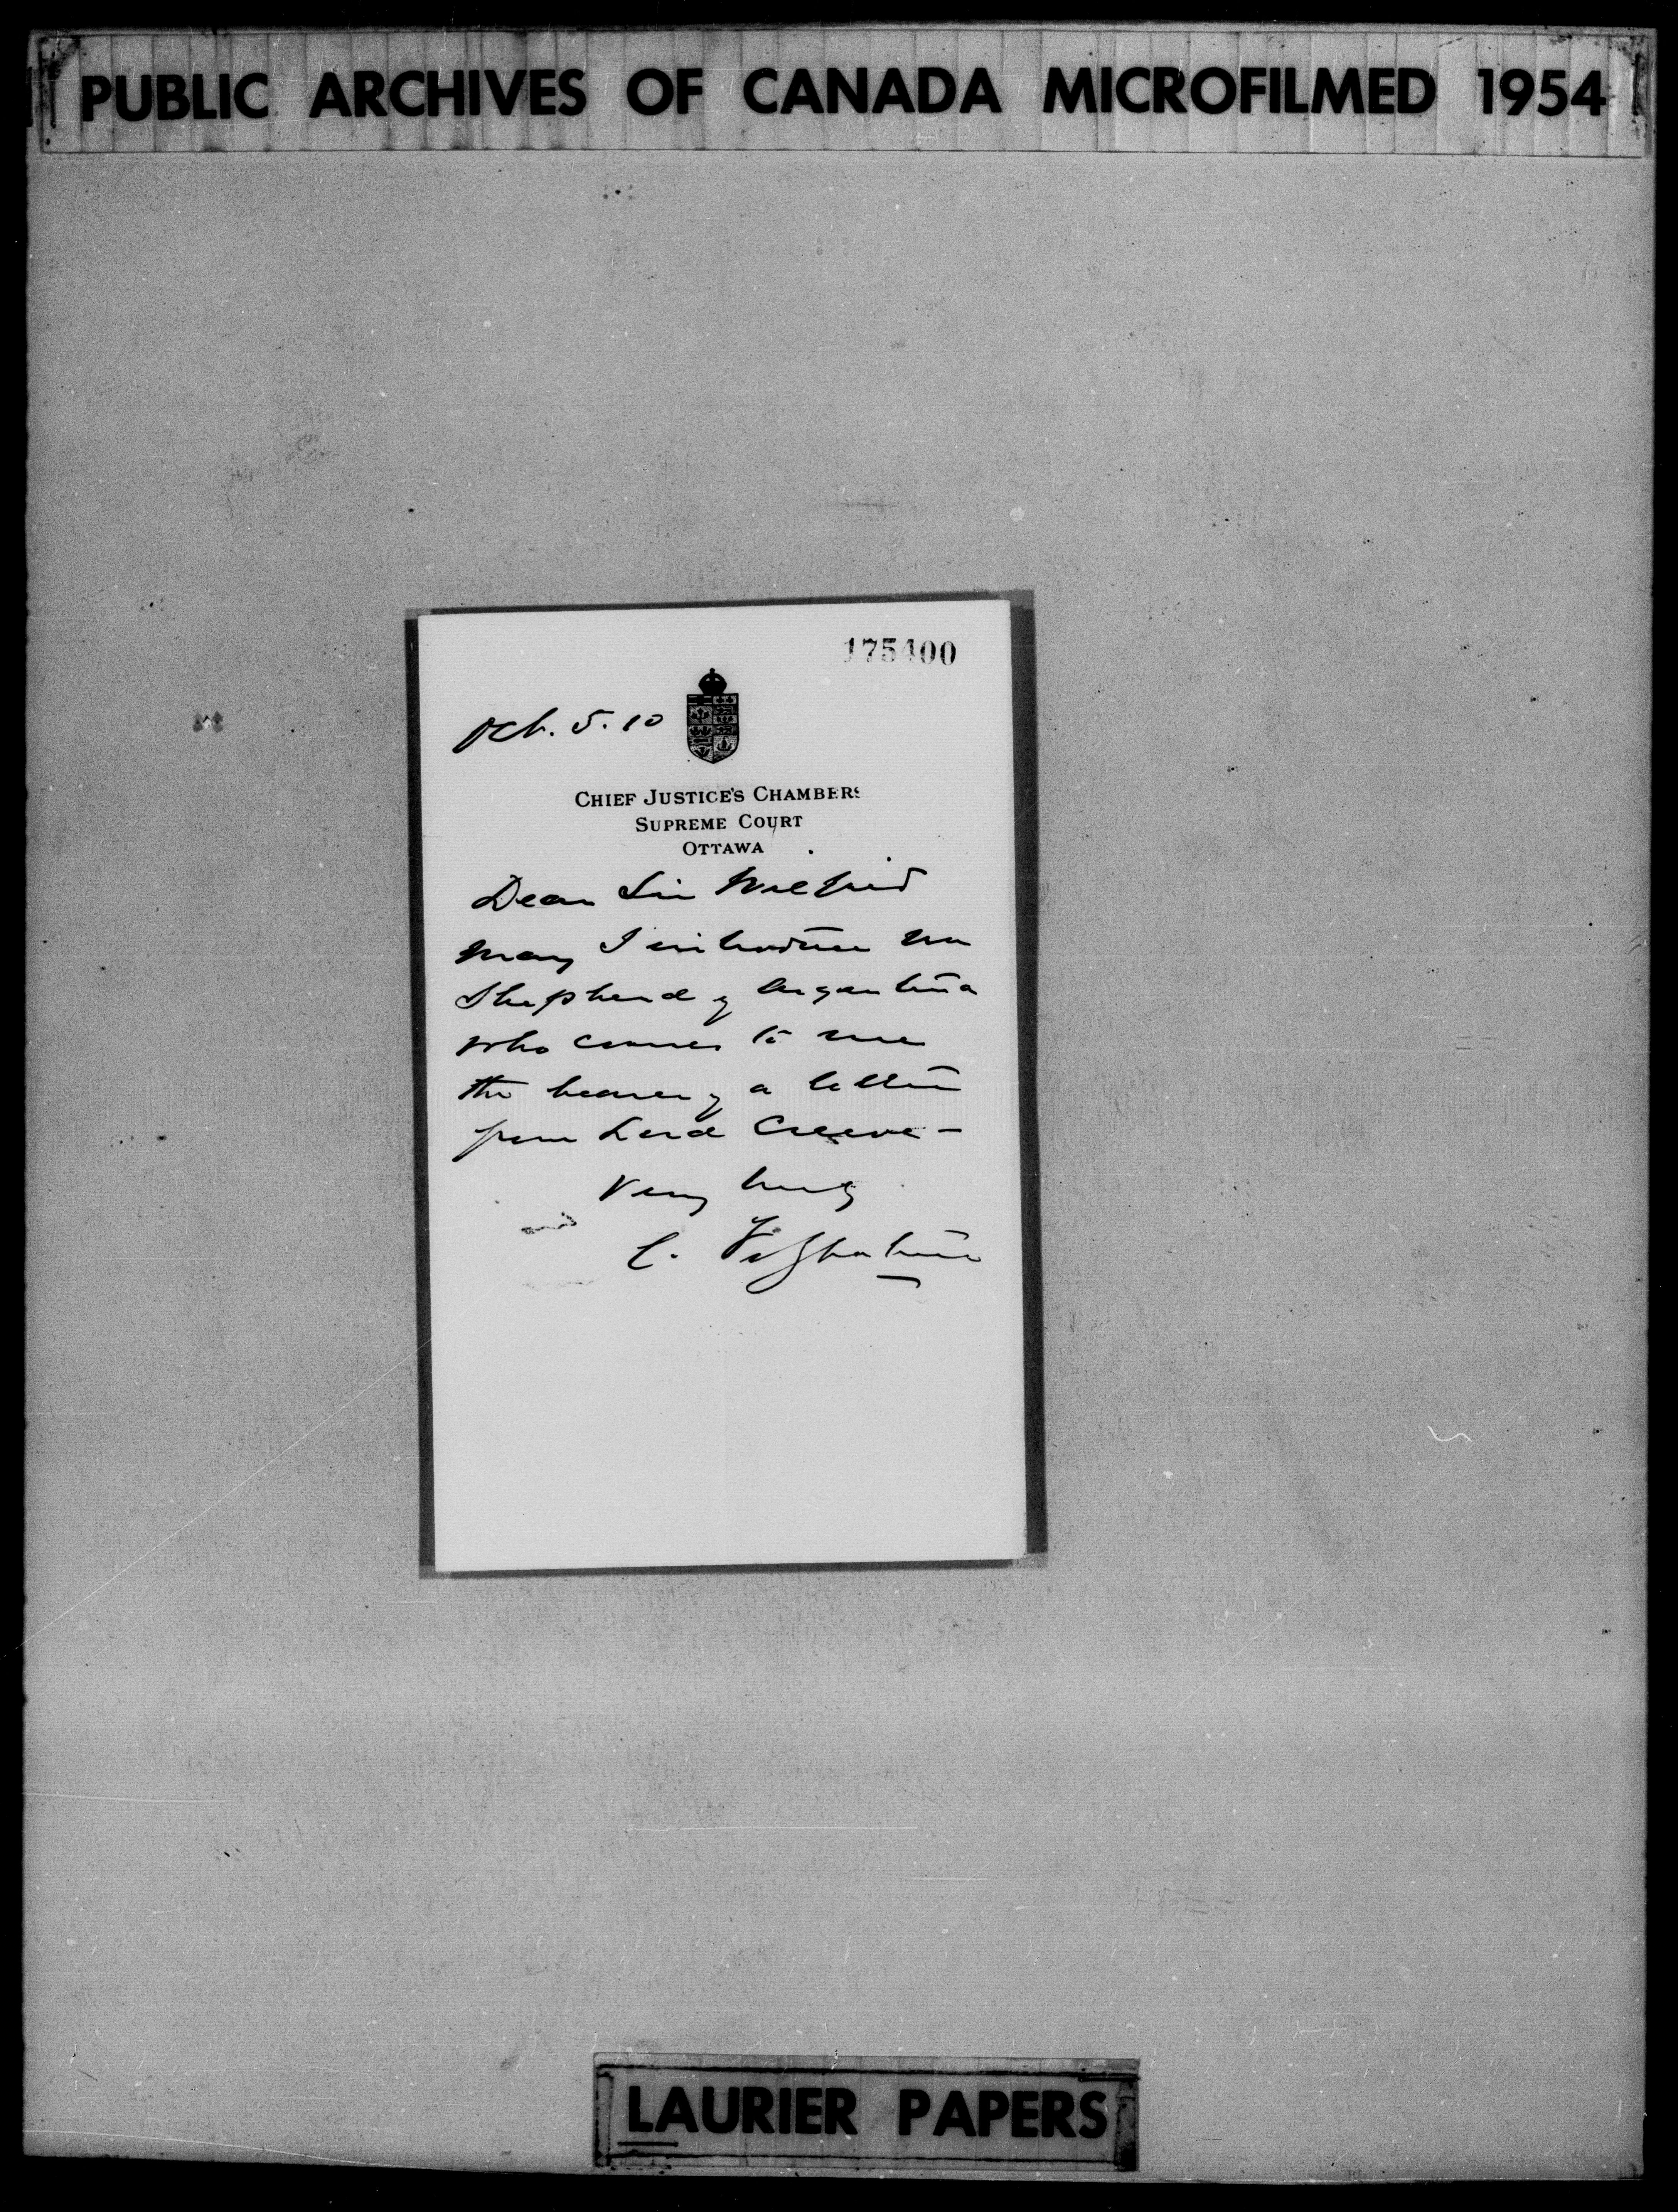 PUBLIC ARCHIVES OF CANADA MICROFILMED 1954
175400
Oct. 5. 10
CHIEF JUSTICE'S CHAMBERS
SUPREME COURT
OTTAWA
Dear Sir Wilfrid
May I introduce Mr
Shepherd of Argentina
who comes to me
the bearer of a letter
from Lord Crewe —
Very truly
C. Fitzpatrick
LAURIER PAPERS